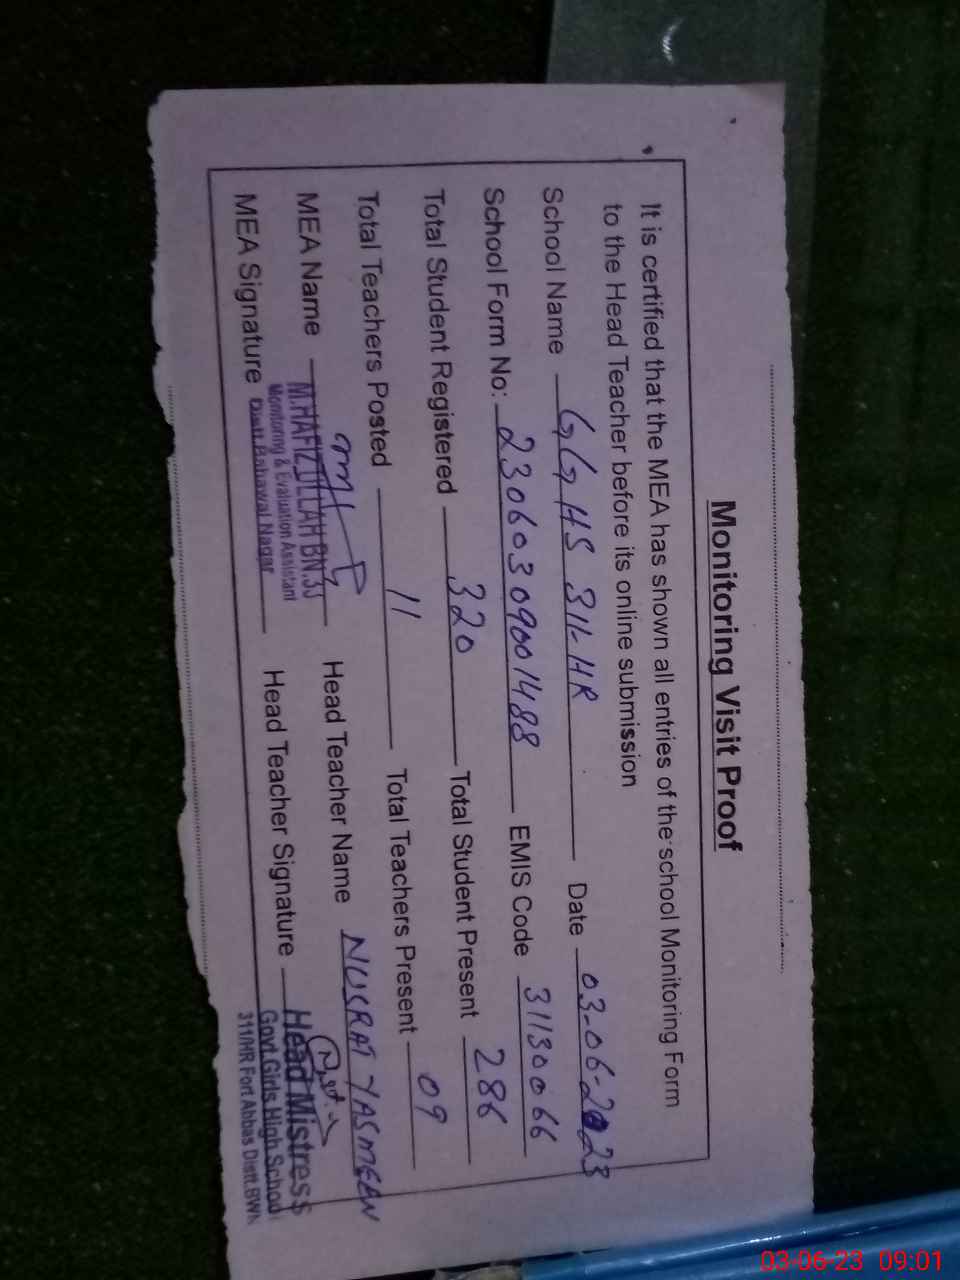 Monitoring Visit Proof
It is certified that the MEA has shown all entries of the school Monitoring Form
to the Head Teacher before its online submission
School Name GGHS 311-HR Date 03-06-2023
School Form No: 23060309001488 EMIS Code 31130066
Total Student Registered 320 Total Student Present 286
Total Teachers Posted 11 Total Teachers Present 09
MEA Name M.HAFIZ ULLAH BN.33 Head Teacher Name NUSRAT YASMEEN
Monitoring & Evaluation Assistant
MEA Signature Distt.Bahawal Nagar Head Teacher Signature Head Mistress
Govt.Girls High School
311/HR Fort Abbas Distt.BWN
03-06-23 09:01